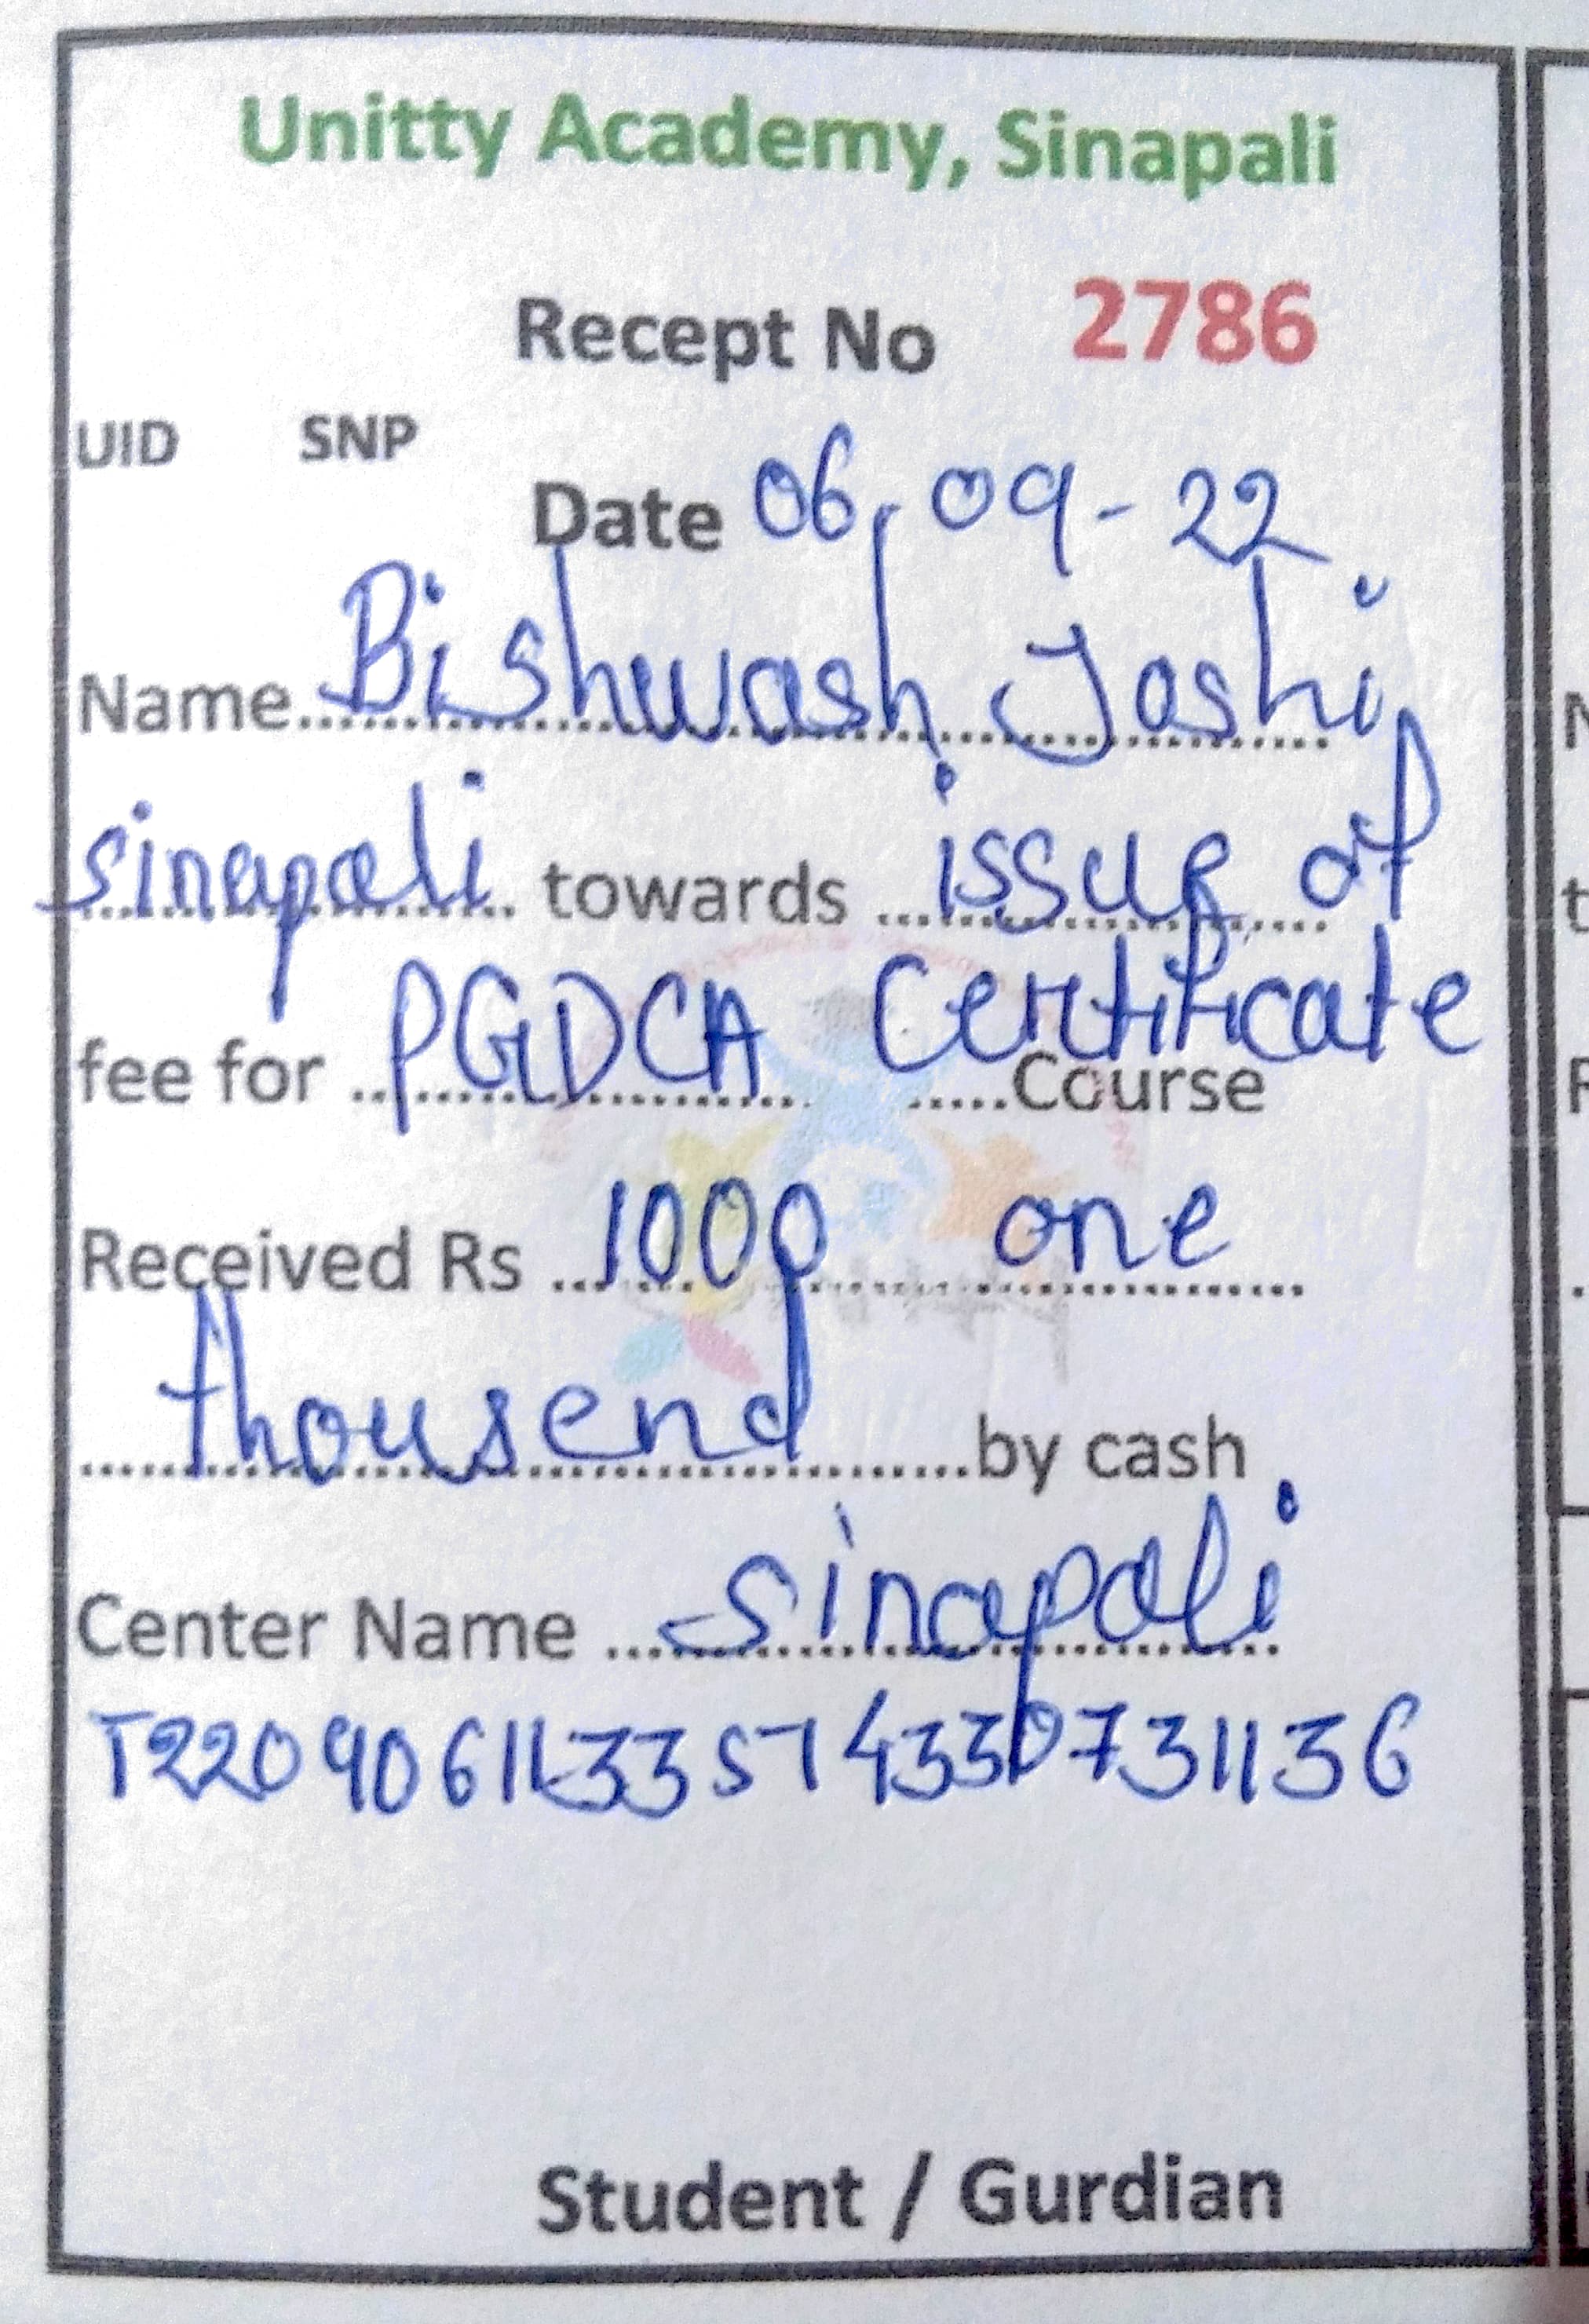 Unitty Academy, Sinapali
Recept No 2786
UID SNP
Date 06-09-22
Name Bishwash Joshi,
sinapali towards issue of
fee for PGDCA Certificate Course
Received Rs 1000 one
thousend by cash
Center Name sinapali
T2209061133514330731136
Student / Gurdian